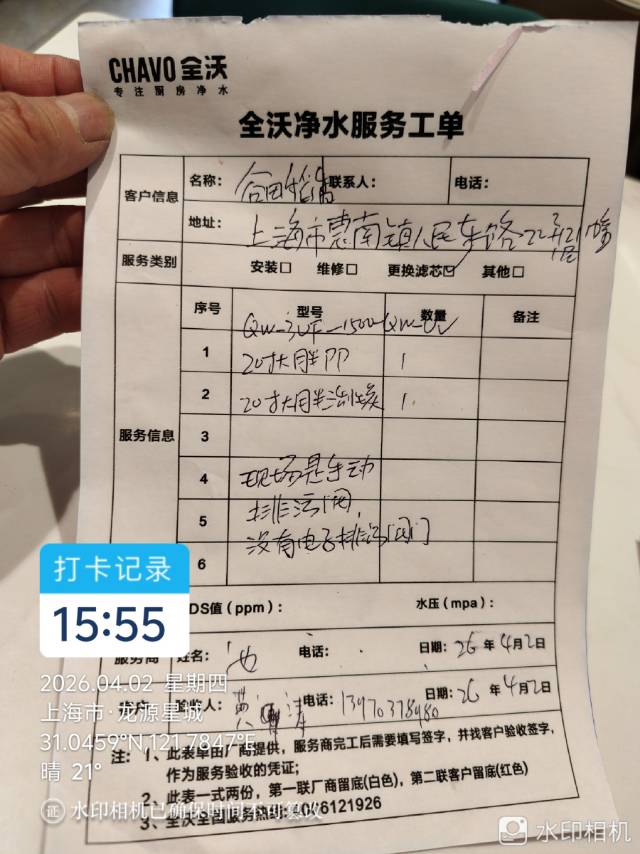 CHAVO 全沃
专注厨房净水
全沃净水服务工单
客户信息
名称: 合田稻 联系人: 电话:
地址: 上海市惠南镇人民东路22号
服务类别 安装□ 维修□ 更换滤芯☑ 其他□
服务信息
序号 型号 数量 备注
1 20寸大胖PP 1
2 20寸大胖活性炭 1
3
4 现场是手动
5 排污阀,
没有电子排污阀门
6
DS值(ppm): 水压(mpa):
服务商 姓名: 电话: 日期: 26年4月2日
客户 验收人: 电话: 13970378980 日期: 26年4月2日
注: 1、此表单由厂商提供,服务商完工后需要填写签字,并找客户验收签字,
作为服务验收的凭证;
2、此表一式两份,第一联厂商留底(白色),第二联客户留底(红色)
3、全沃全国服务热线:4006121926
打卡记录
15:55
2026.04.02 星期四
上海市·龙源星城
31.0459°N,121.7847°E
晴 21°
证 水印相机已确保时间不可篡改
水印相机